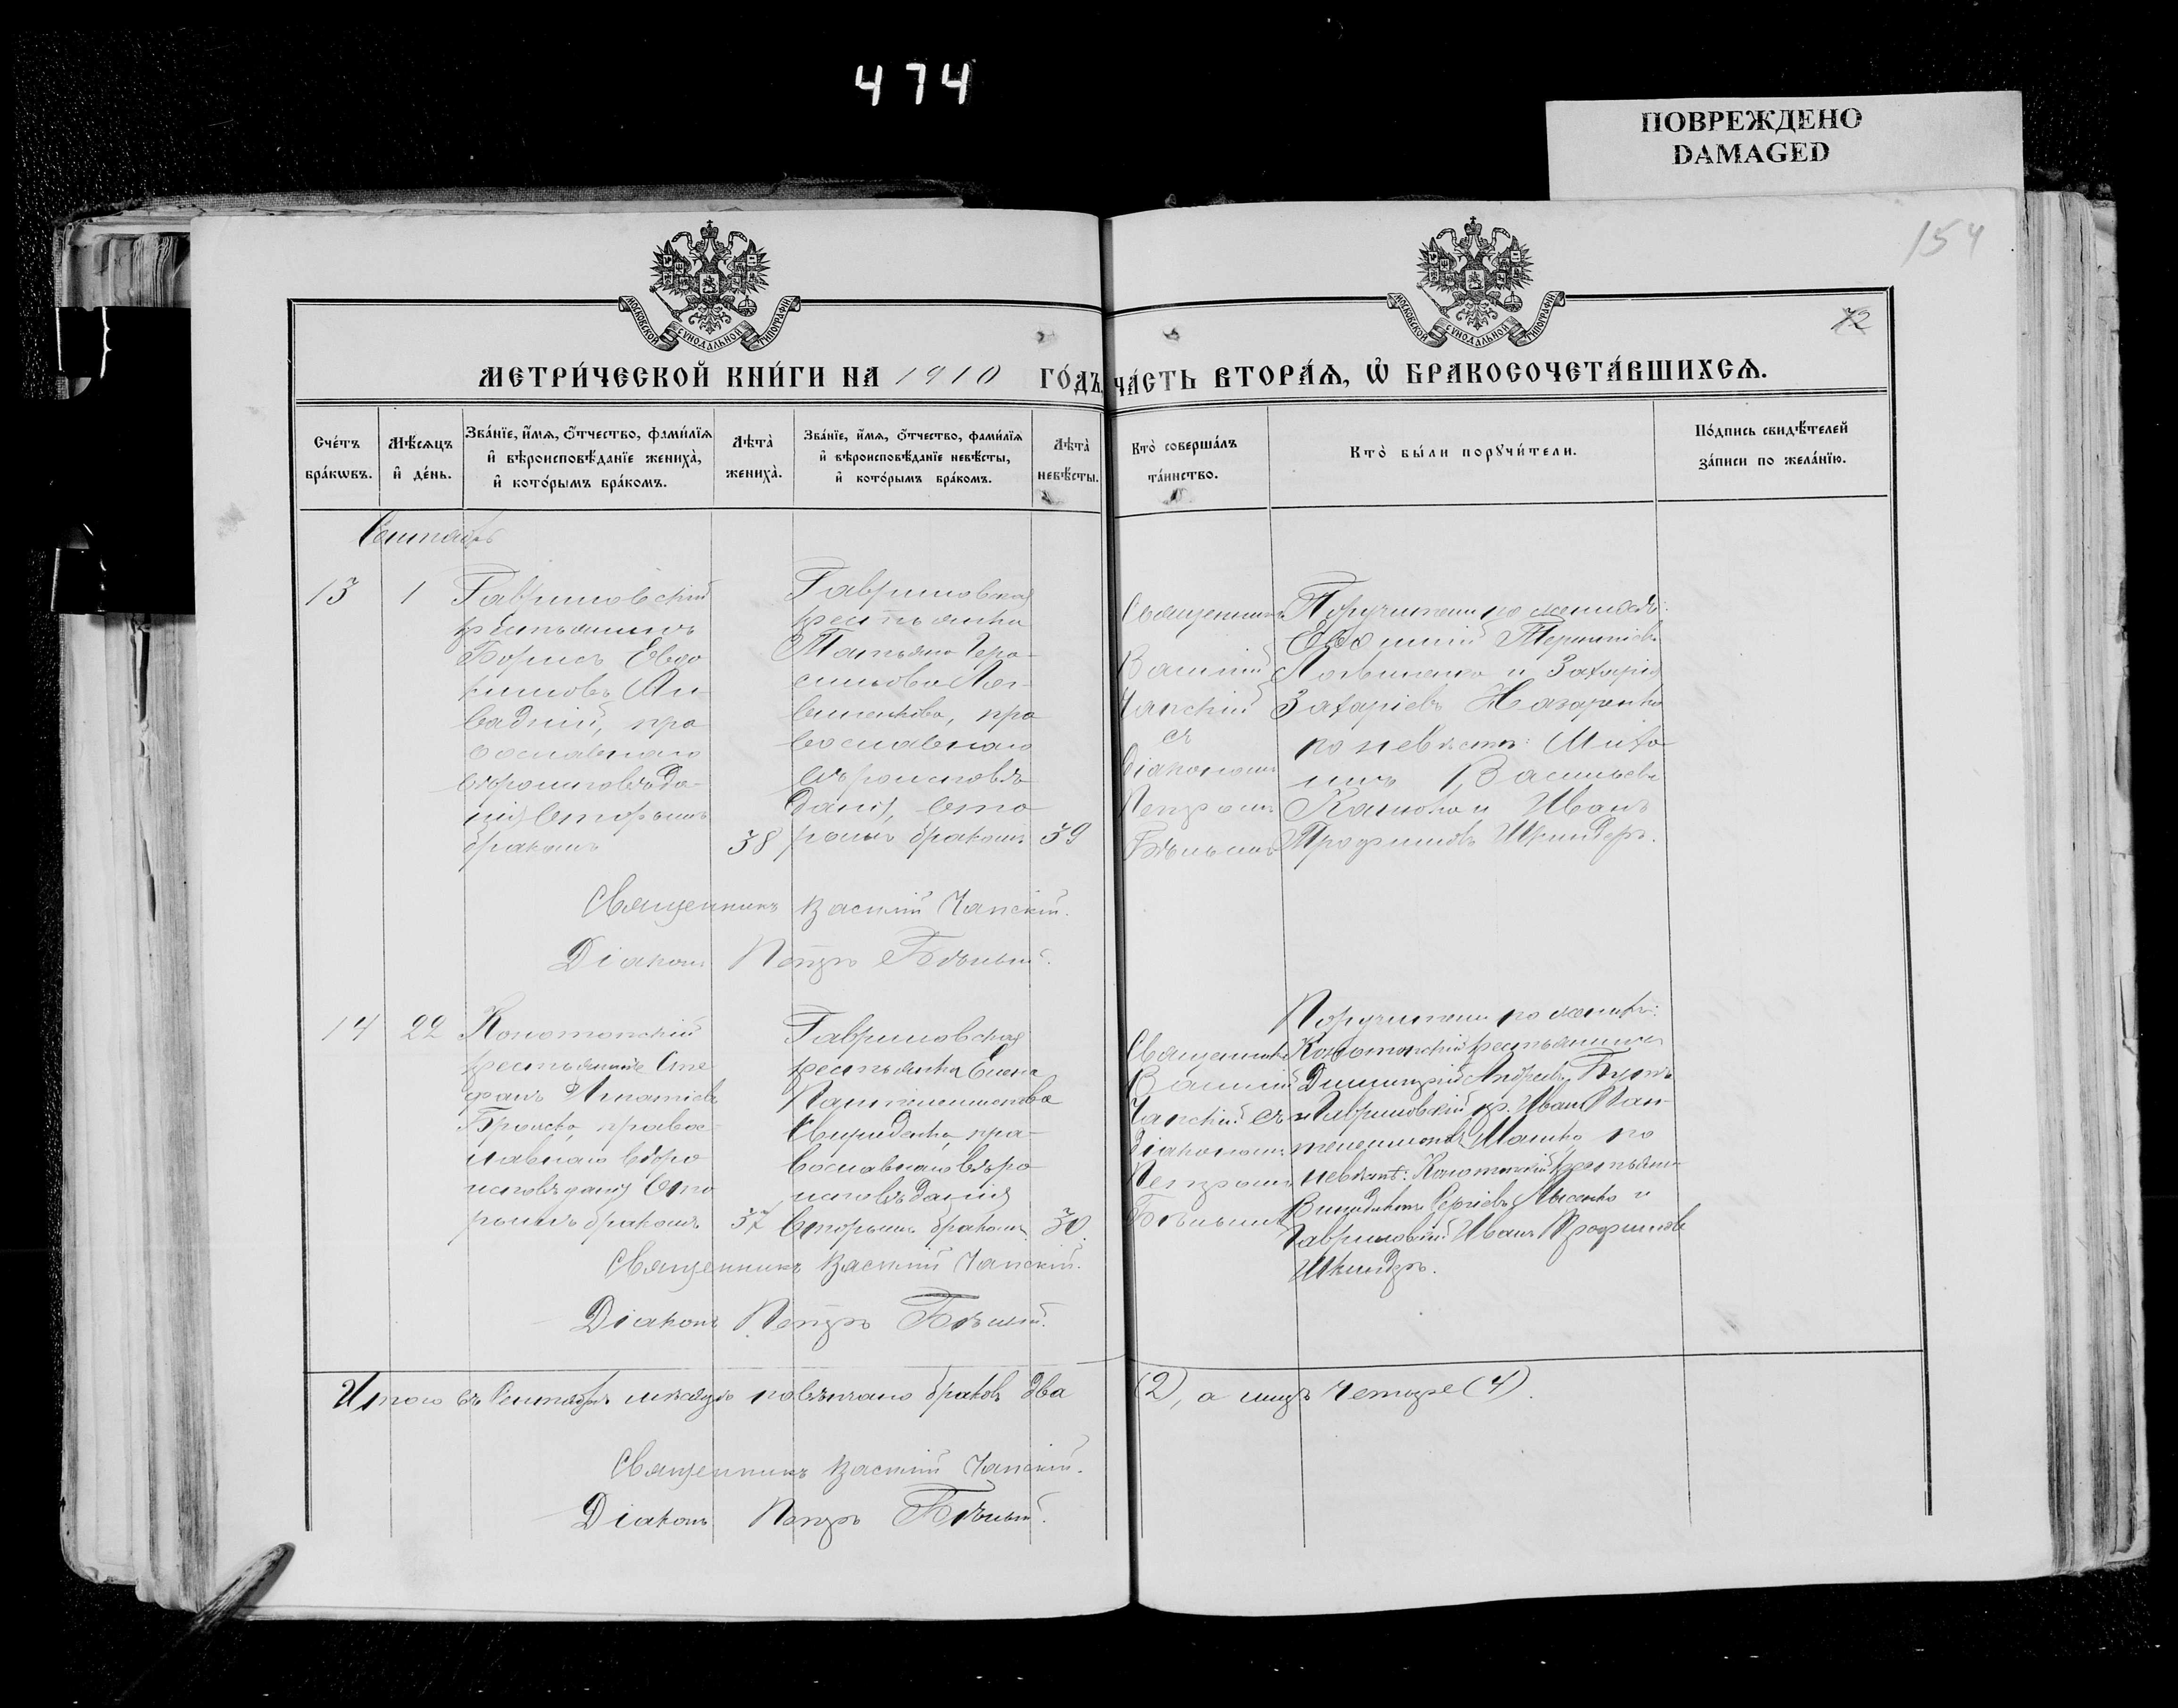 474
ПОВРЕЖДЕНО
DAMAGED
154
72
МОСКОВСКОЙ СѴНОДАЛЬНОЙ ТИПОГРАФІИ
МОСКОВСКОЙ СѴНОДАЛЬНОЙ ТИПОГРАФІИ
МЕТРИ́ЧЕСКОЙ КНИ́ГИ НА 1910 ГО́ДЪ, ЧА́СТЬ ВТОРА́Ѧ, Ѽ БРАКОСОЧЕТА́ВШИХСѦ.
Сче́тъ бра́кѡвъ.
Мѣ́сѧцъ и҆ де́нь.
Зва́нїе, и҆́мѧ, ѻ҆́тчество, фами́лїѧ и҆ вѣроисповѣ́данїе жениха̀, и҆ кото́рымъ бра́комъ.
Лѣта̀ жениха̀.
Зва́нїе, и҆́мѧ, ѻ҆́тчество, фами́лїѧ и҆ вѣроисповѣ́данїе невѣ́сты, и҆ кото́рымъ бра́комъ.
Лѣта̀ невѣ́сты.
Кто̀ соверша́лъ та́инство.
Кто̀ бы́ли порꙋчи́тели.
По́дпись свидѣ́телей за́писи по жела́нїю.
Сентябрь
13
1
Гавришовскій
крестьянинъ
Борисъ Евдо
кимовъ
вадній, пра
вославнаго
вѣроисповѣда-
нія вторымъ
бракомъ
38
Гавришовская
крестьянка
Татьяна Гера-
симова Лог-
виненкова, пра
вославнаго
вѣроисповѣ
данія, вто
рымъ бракомъ
39
Священникъ
Василій
Чапскій
съ
діакономъ
Петромъ
Бѣлымъ
Поручители по женихѣ:
Евфимій Терентіевъ
Логвиненко и Захарія
Захаріевъ Назаренко
по невѣстѣ: Миха
илъ Васильевъ
Калюка и Иванъ
Трофимовъ Шкиндеръ.
Священникъ Василій Чапскій.
Діаконъ Петръ Бѣлый.
14
22
Конотопскій
крестьянинъ Сте
фанъ Игнатіевъ
правос-
лавнаго вѣро
исповѣданія вто
рымъ бракомъ
37
Гавришовская
крестьянка Елена
Пантелеимонова
Свириденко, пра-
вославнаго вѣро
исповѣданія
вторымъ бракомъ
30.
Священникъ
Василій
Чапскій съ
діакономъ
Петромъ
Бѣлымъ
Поручители по женихѣ:
Конотопскій крестьянинъ
Димитрій Андреевъ
и Гавришовскій кр. Иванъ Пан-
телеимоновъ Машко, по
невѣстѣ: Конотопскій крестьянинъ
Сергіевъ Лысенко и
Гавришовскій Иванъ Трофимовъ
Шкиндеръ.
Священникъ Василій Чапскій.
Діаконъ Петръ Бѣлый.
Итого въ Сентябрѣ мѣсяцѣ повѣнчано браковъ два (2), а лицъ четыре (4).
Священникъ Василій Чапскій.
Діаконъ Петръ Бѣлый.